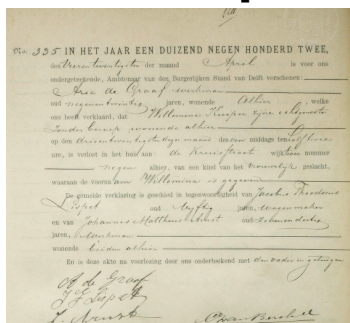 No. 335 IN HET JAAR EEN DUIZEND NEGEN HONDERD TWEE,
den Vierentwintigsten der maand April is voor ons
ondergeteekende, Ambtenaar van den Burgerlijken Stand van Delft verschenen:
Arie de Graaf werkman
oud negenentwintig jaren, wonende Alhier; welke
ons heeft verklaard, dat Willemina Kuiper zijne echtgenoote
zonder beroep wonende alhier
op den drieentwintigsten dezer maand des voor middags ten half twee
ure, is verlost in het huis aan de wijk nummer
negen alhier, van een kind van het vrouwelijk geslacht,
waaraan de voornaam Willemina is gegeven
De gemelde verklaring is geschied in tegenwoordigheid van Jacobus Theodorus
Lispet oud vijftig jaren, wagenmaker
en van Johannes Mattheus oud
jaren, werkman
wonende beiden alhier
En is deze akte na voorlezing door ons onderteekend met den vader en getuigen
A de Graaf
Lispet